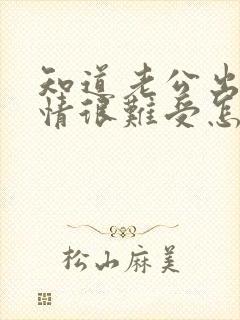 知道老公出
情很難受怎
松山麻美